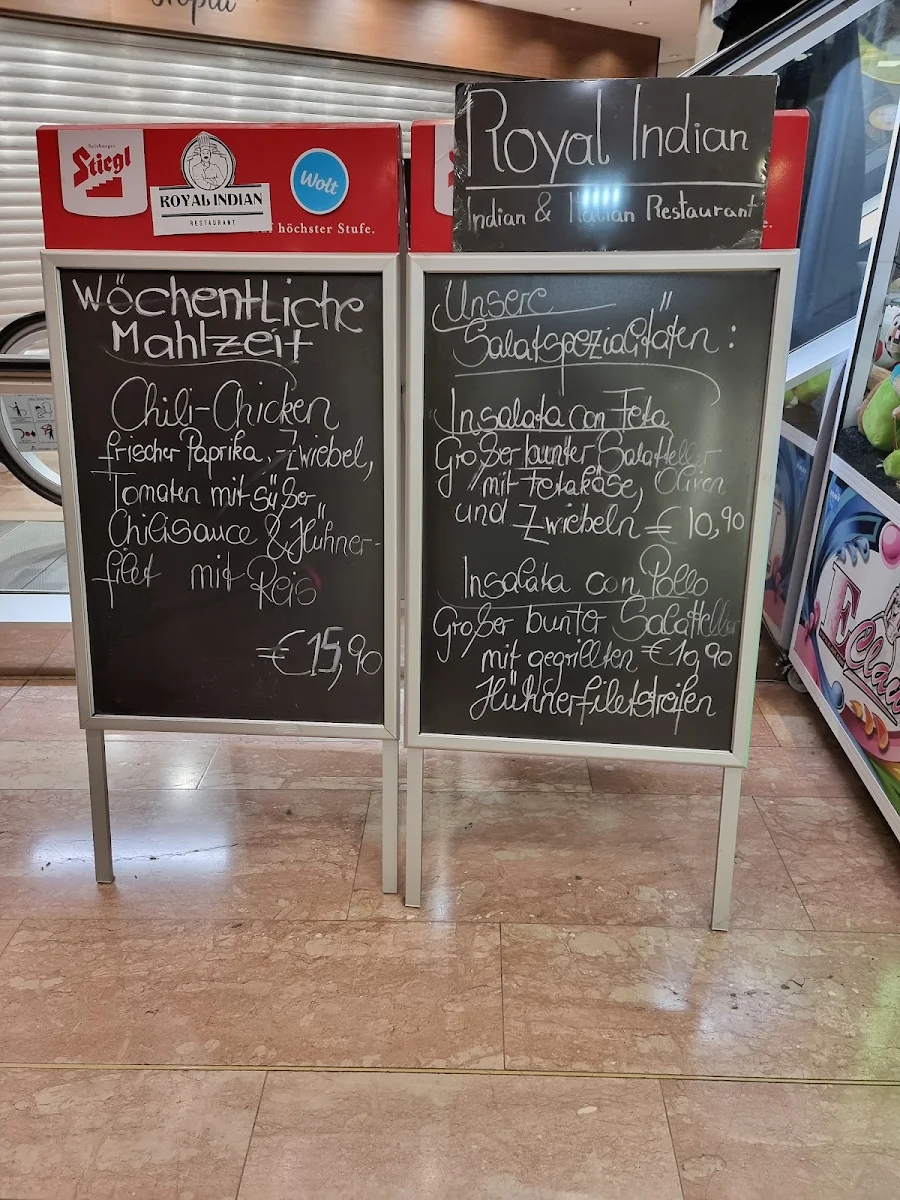 Salzburger
Stiegl
ROYAL INDIAN
RESTAURANT
Wolt
höchster Stufe.
Wöchentliche
Mahlzeit
Chili-Chicken
frischer Paprika, -Zwiebel,
Tomaten mit süßer
Chilisauce & Hühner-
filet mit Reis
€ 15,90
Royal Indian
Indian & Italian Restaurant
e.
Unsere
Salatspezialitäten :
Insalata con Feta
Großer bunter Salatteller
mit Fetakäse, Oliven
und Zwiebeln € 10,90
Insalata con Pollo
Großer bunter Salatteller
mit gegrillten € 10,90
Hühnerfiletstreifen